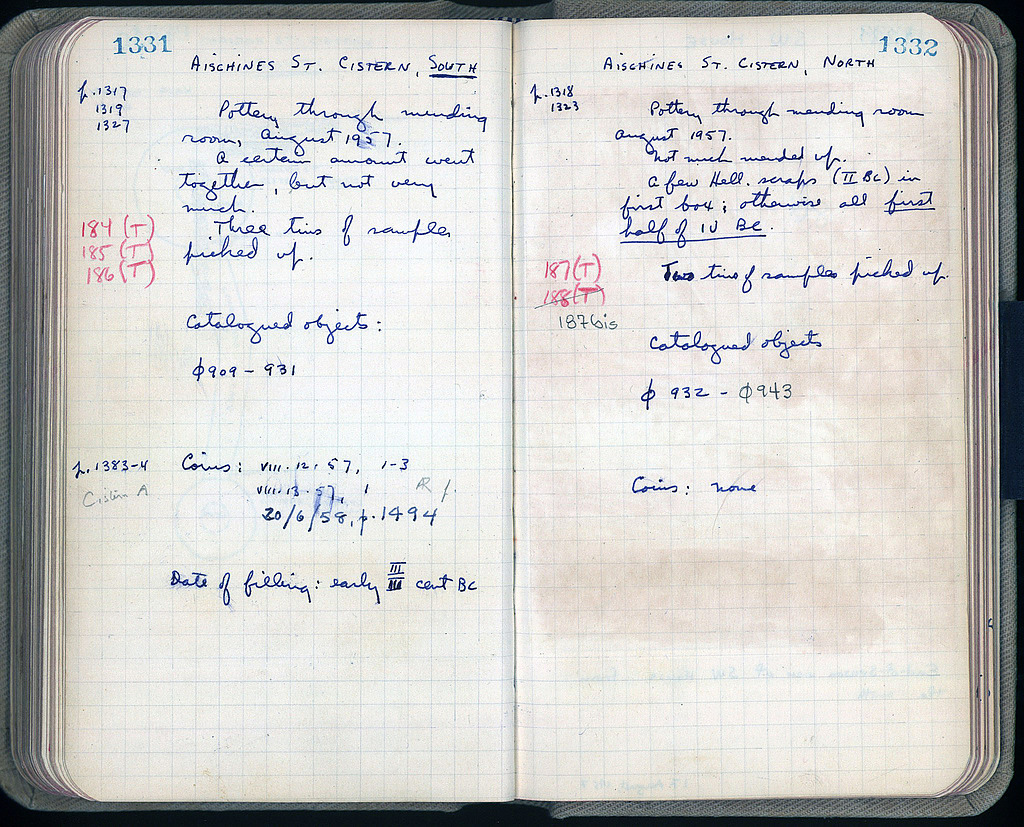 1331
AISCHINES ST. CISTERN, SOUTH
p. 1317
1319
1327
Pottery through mending
room, August 1957.
A certain amount went
together, but not very
much.
184 (T)
185 (T)
186 (T)
Three tins of samples
picked up.
Catalogued objects:
ϕ909 - 931
p. 1383-4
Cistern A
Coins: VIII. 12. 57, 1-3
VIII. 13. 57, 1
20/6/58, p. 1494
Date of filling: early III cent BC
1332
AISCHINES ST. CISTERN, NORTH
p. 1318
1323
Pottery through mending room
August 1957.
Not much mended up.
A few Hell. scraps (II BC) in
first box; otherwise all first
half of IV BC.
187 (T)
188 (T)
187bis
Two tins of samples picked up.
Catalogued objects
ϕ 932 - ϕ943
Coins: none